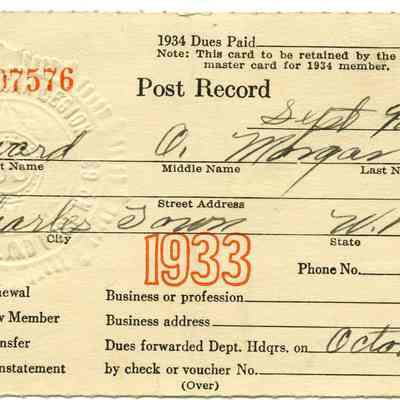 1934 Dues Paid
Note: This card to be retained by the
master card for 1934 member.
07576
Post Record
Sept 9
ward O. Morgan
st Name Middle Name Last N
Street Address
Charles Town W.
City State
1933
Phone No.
newal Business or profession
w Member Business address
nsfer Dues forwarded Dept. Hdqrs. on Octo
instatement by check or voucher No.
(Over)